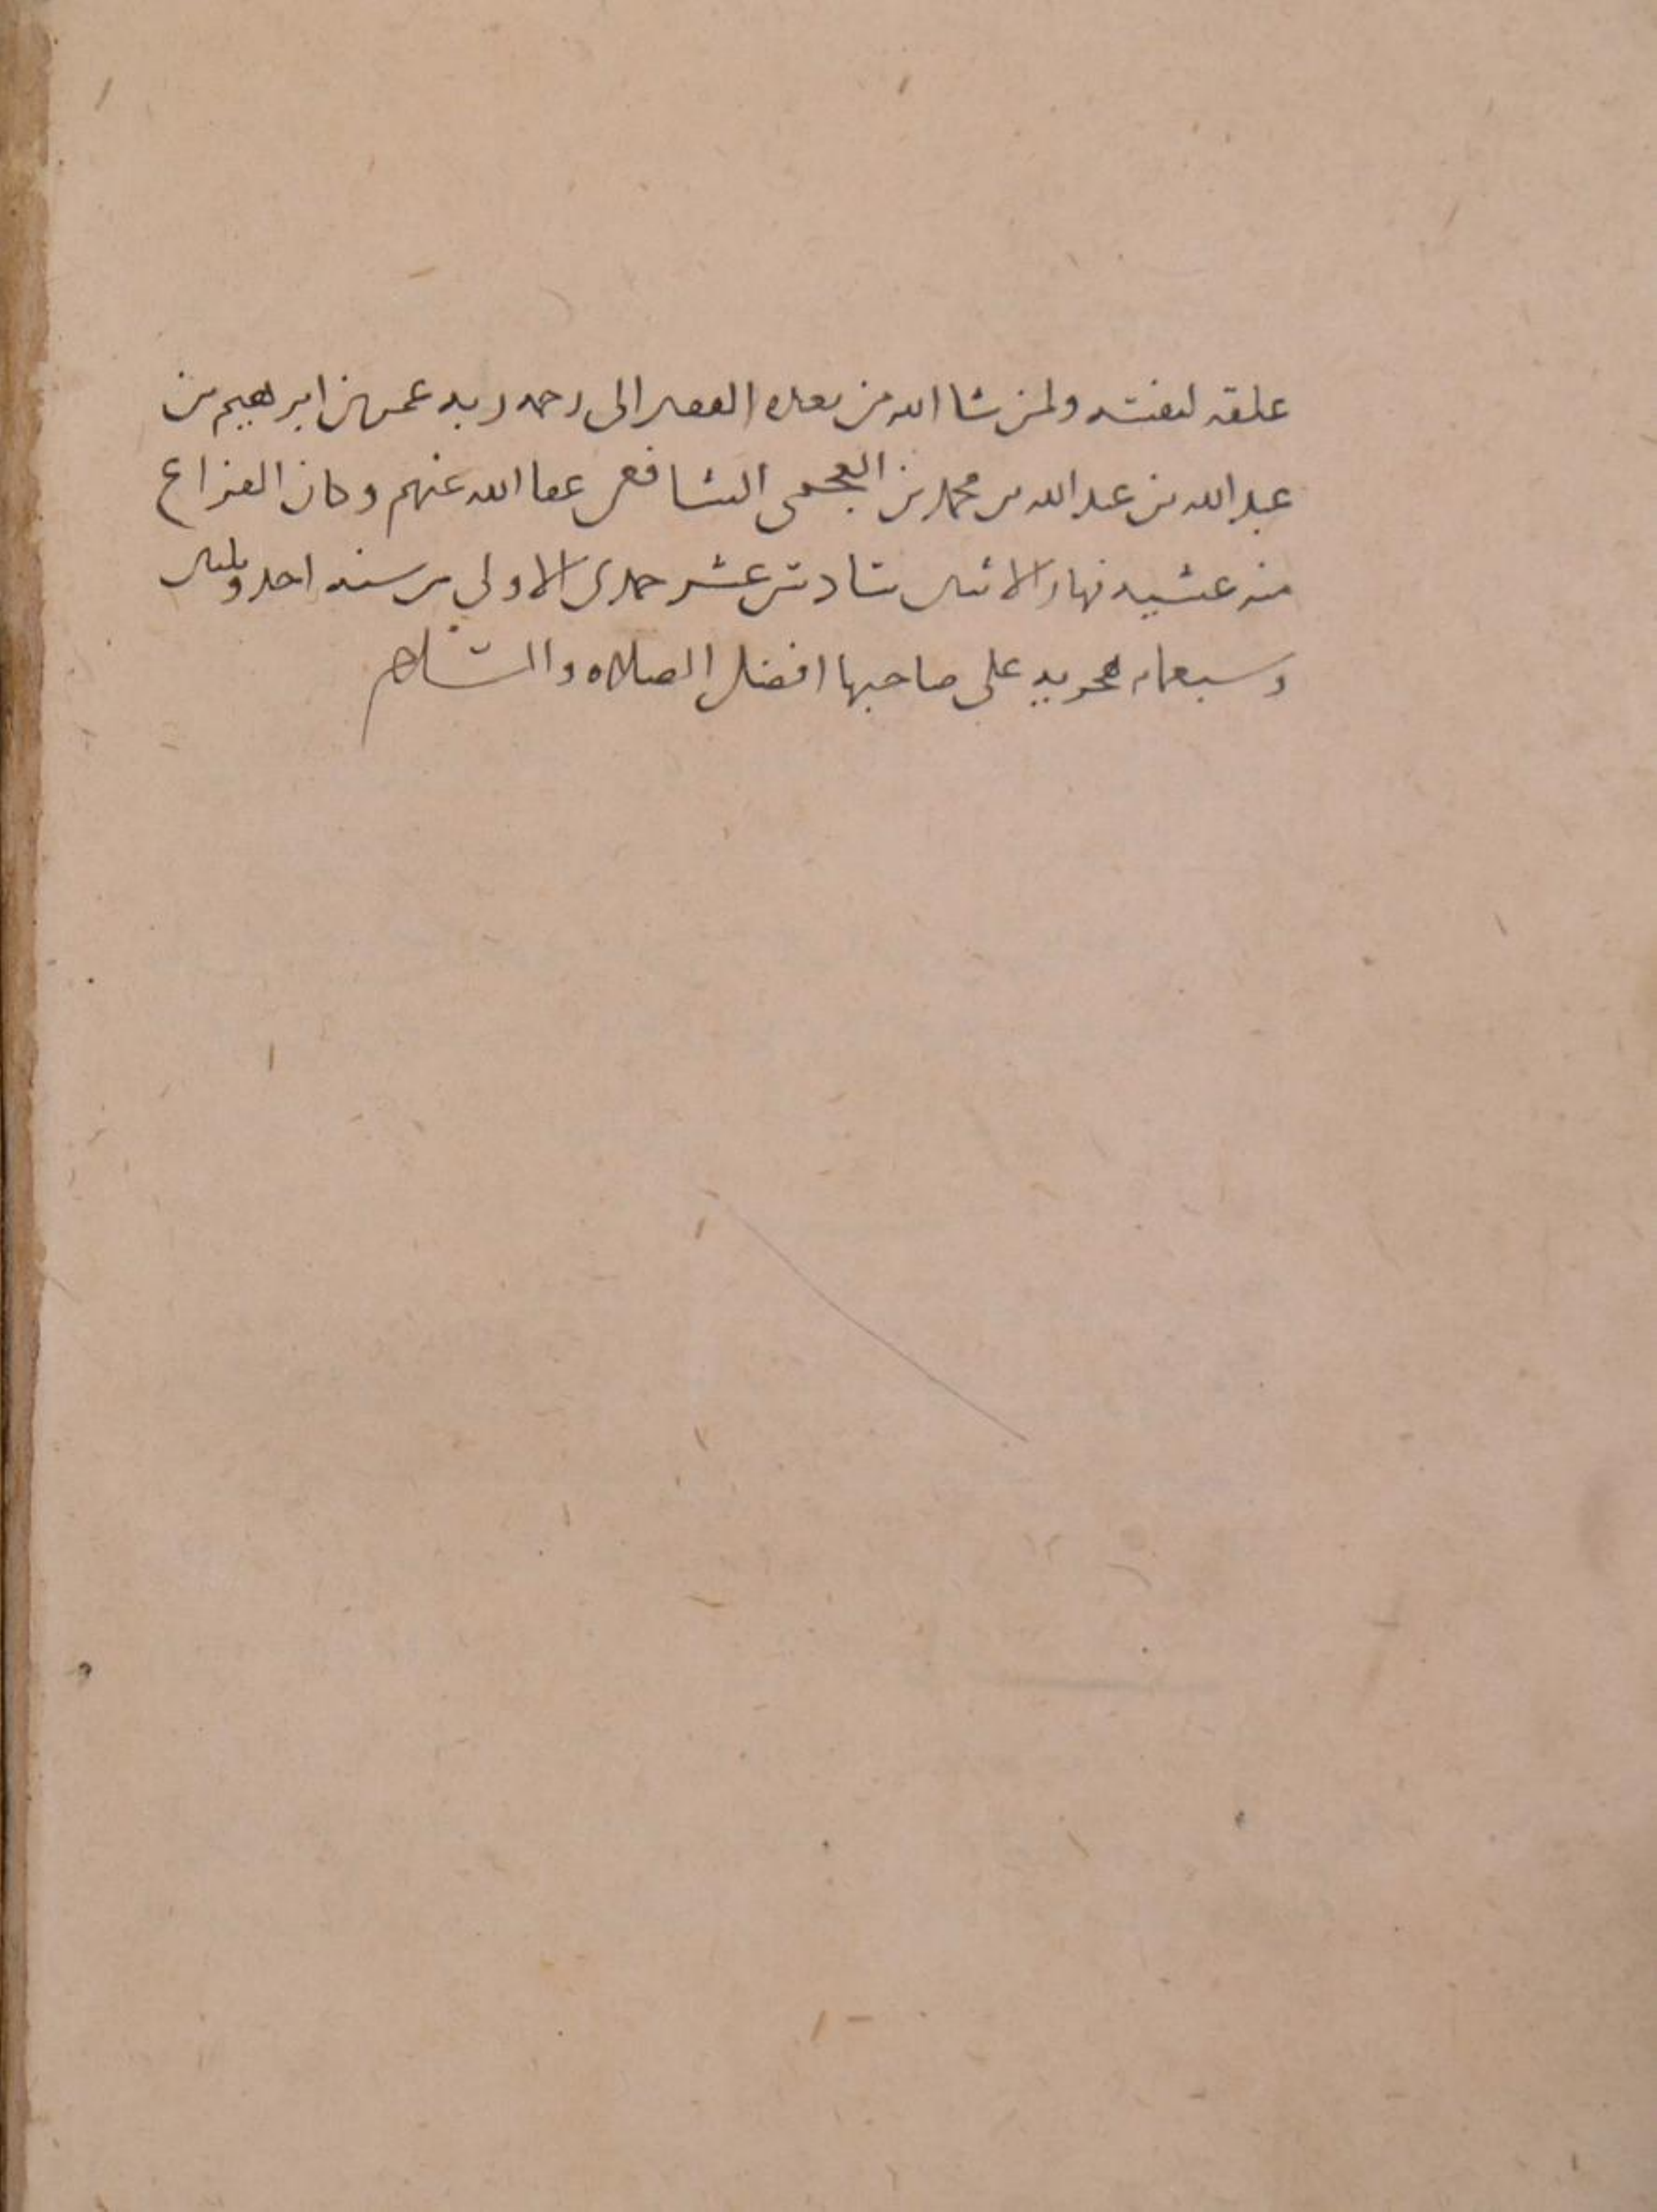 علقه لنفسه ولمن شا الله من بعده الفقير الى رحمه ربه عمر بن ابرهيم بن
عبد الله بن عبد الله بن محمد بن العجمى الشافعى عفا الله عنهم وكان الفراغ
منه عشيه نهار الاثنين سادس عشر جمدى الاولى من سنه احد وثلثين
وسبعمايه هجريه على صاحبها افضل الصلاه والسلام